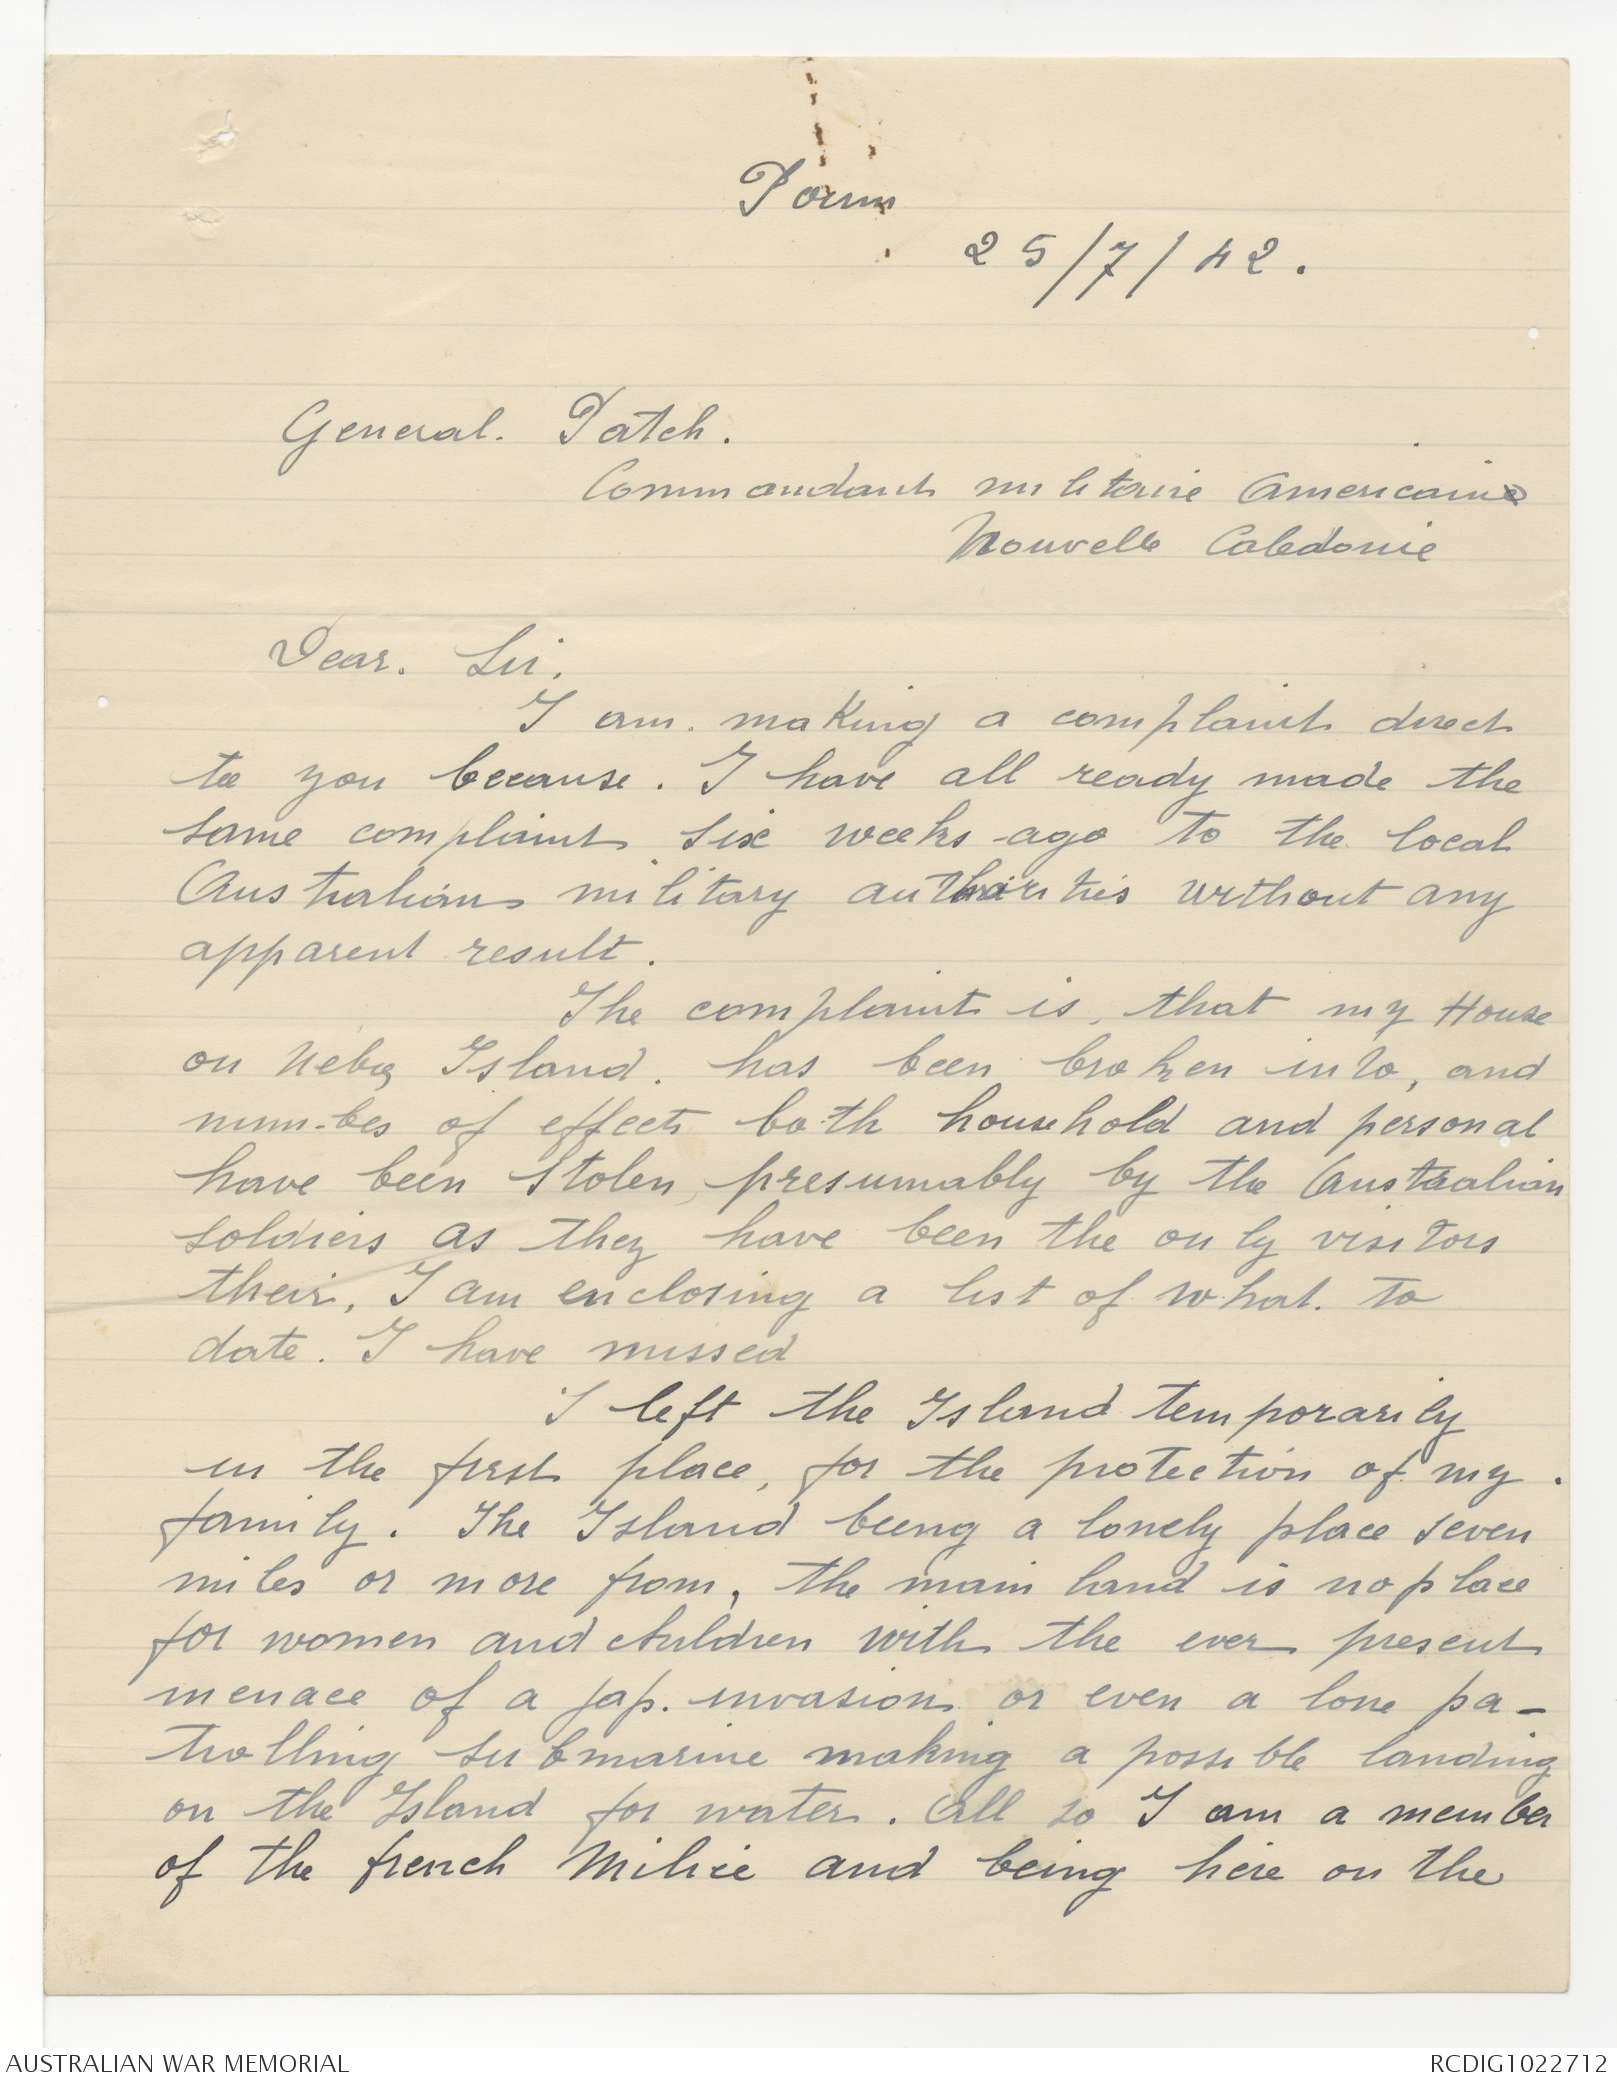 Poum
25/7/42.
General. Patch.
Commandant militaire Americaine
Nouvelle Caledonie
Dear. Sir.
I am. making a complaint direct
to you because. I have all ready made the
same complaint six weeks ago to the local
Australian military authorities without any
apparent result.
The complaint is, that my House
on Neba Island. has been broken into, and
num-bes of effects both household and personal
have been stolen, presumably by the Australian
soldiers as they have been the only visitors
their, I am enclosing a list of what. to
date. I have missed
I left the Island temporarily
in the first place, for the protection of my.
family. The Island being a lonely place seven
miles or more from, the main land is no place
for women and children with the ever present
menace of a jap. invasion or even a lone pa-
trolling submarine making a possible landing
on the Island for water. All so I am a member
of the french Milice and being here on the
AUSTRALIAN WAR MEMORIAL
RCDIG1022712